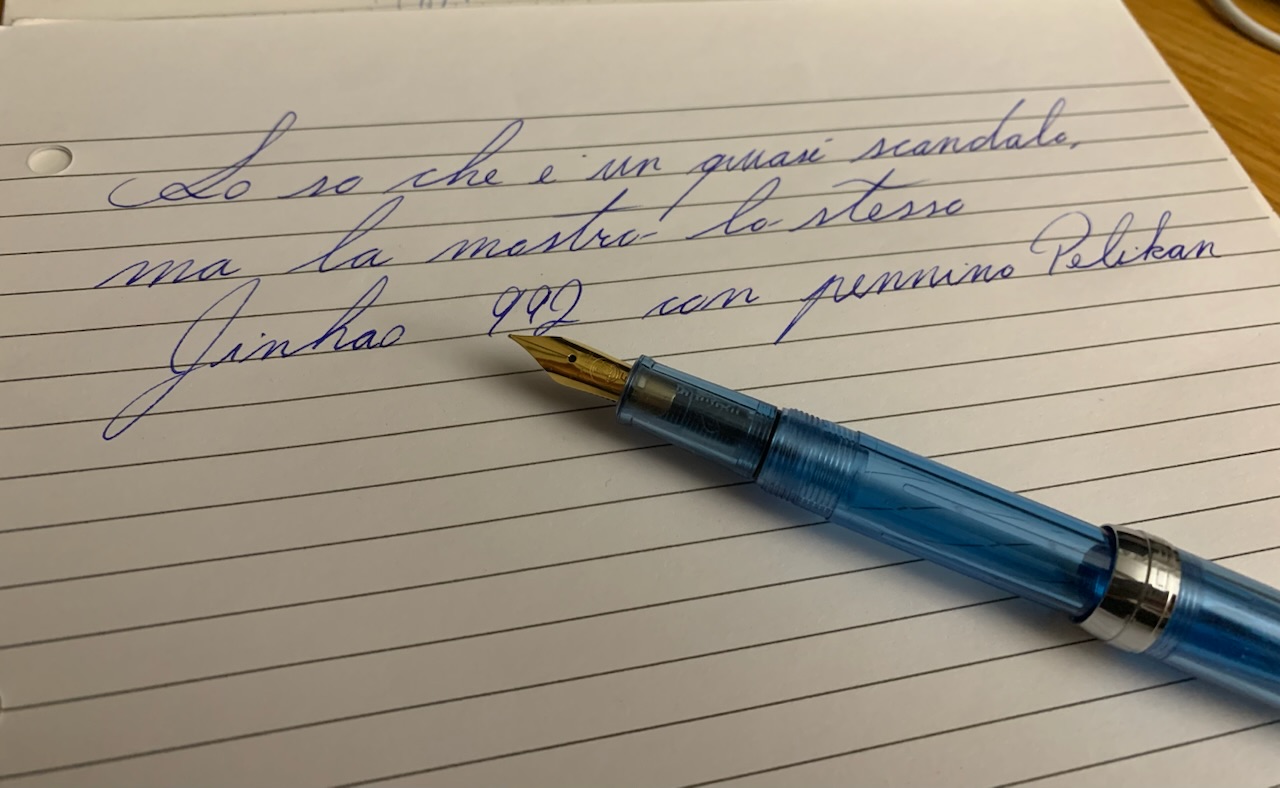 Lo so che è un quasi scandalo,
ma la mostro lo stesso
Jinhao 992 con pennino Pelikan